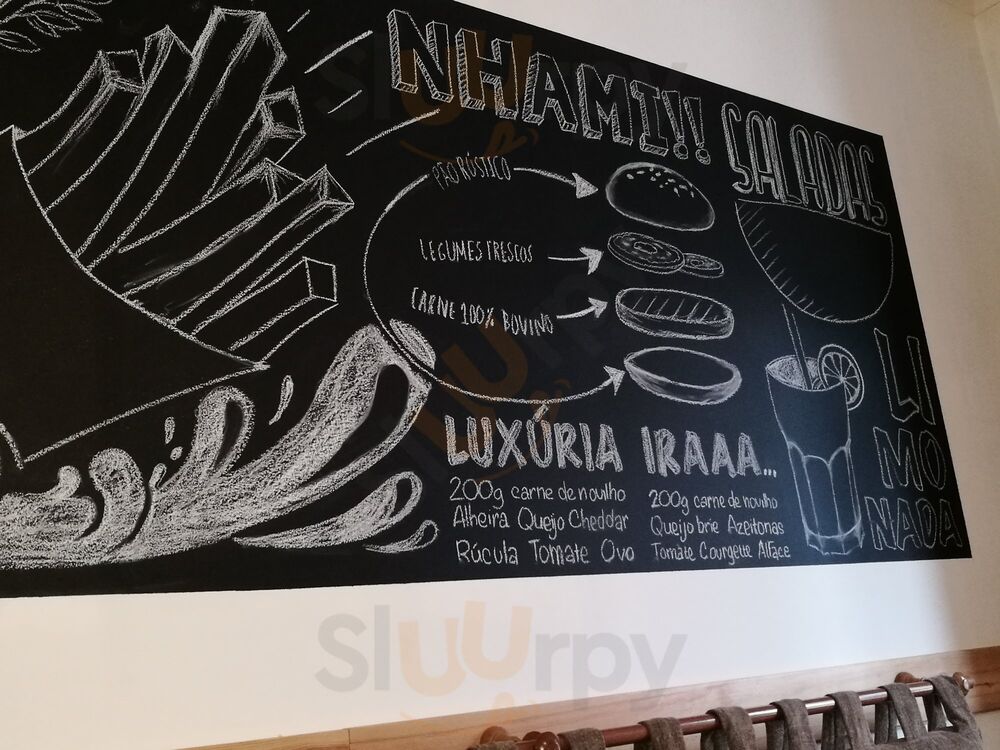 NHAMI!!
SALADAS
PÃO RÚSTICO
LEGUMES FRESCOS
CARNE 100% BOVINO
LUXÚRIA
200g carne de novilho
Alheira Queijo Cheddar
Rúcula Tomate Ovo
IRAAA...
200g carne de novilho
Queijo brie Azeitonas
Tomate Courgette Alface
LI
MO
NADA
Sluurpy
Sluurpy